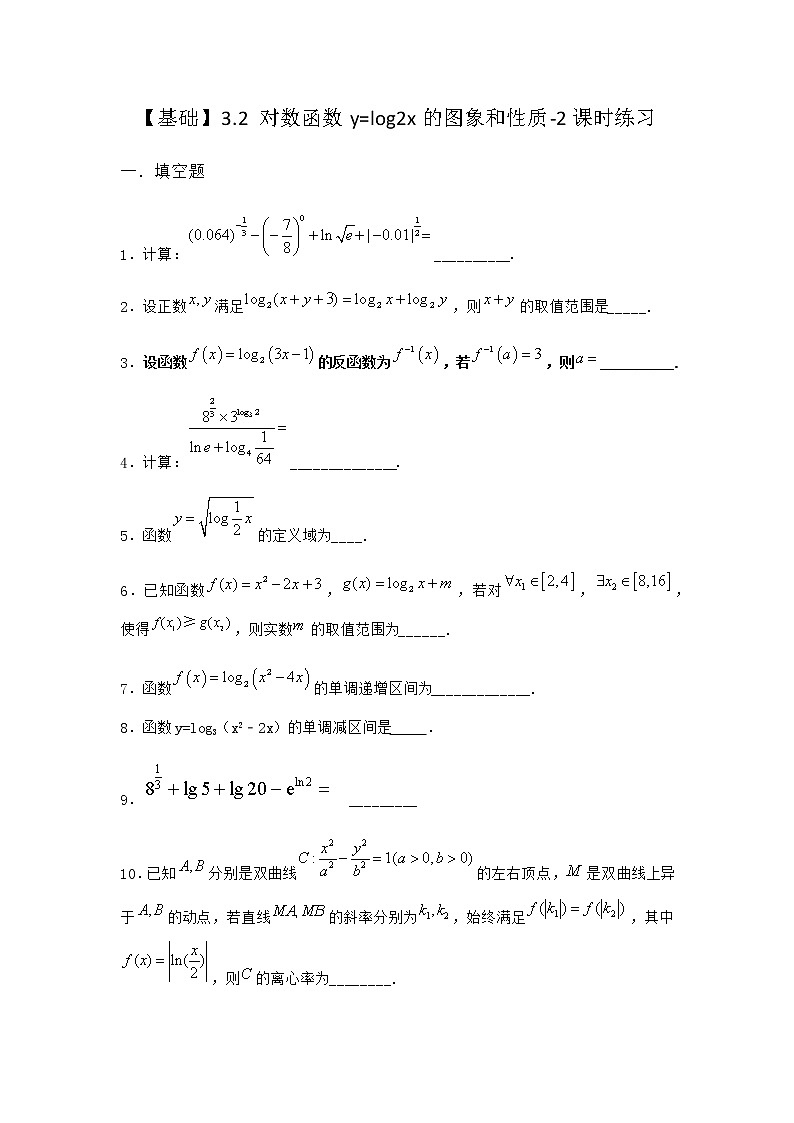 【基础】3.2 对数函数 y=log2x 的图象和性质-2 课时练习
一. 填空题
1.计算: $(0.064)^{-\frac{1}{3}}-\left(-\frac{7}{8}\right)^{0}+\ln\sqrt{e}+|-0.01|^{\frac{1}{2}}=$__________.
2.设正数$x,y$满足$\log_2(x+y+3)=\log_2 x+\log_2 y$,则$x+y$的取值范围是_____.
3.设函数$f(x)=\log_2(3x-1)$的反函数为$f^{-1}(x)$,若$f^{-1}(a)=3$,则$a=$__________.
4.计算: $\frac{8^{\frac{2}{3}}\times 3^{\log_3 2}}{\ln e+\log_4\frac{1}{64}}=$______________.
5.函数$y=\sqrt{\log\frac{1}{2}x}$的定义域为____.
6.已知函数$f(x)=x^2-2x+3$,$g(x)=\log_2 x+m$,若对$\forall x_1\in[2,4]$,$\exists x_2\in[8,16]$,
使得$f(x_1)\ge g(x_2)$,则实数$m$的取值范围为______.
7.函数$f(x)=\log_2(x^2-4x)$的单调递增区间为_____________.
8.函数 y=log₃(x²﹣2x)的单调减区间是_____.
9. $8^{\frac{1}{3}}+\lg 5+\lg 20-e^{\ln 2}=$ _________
10.已知$A,B$分别是双曲线$C:\frac{x^2}{a^2}-\frac{y^2}{b^2}=1(a>0,b>0)$的左右顶点,$M$是双曲线上异
于$A,B$的动点,若直线$MA,MB$的斜率分别为$k_1,k_2$,始终满足$f(|k_1|)=f(|k_2|)$,其中
$f(x)=\left|\ln(\frac{x}{2})\right|$,则$C$的离心率为________.